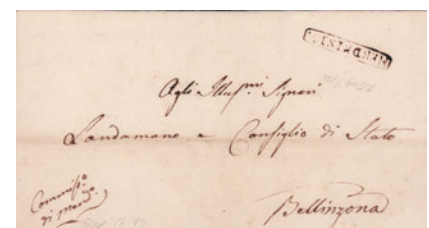 MENDRISIO
Agli Illus.mi Signori
Landamano e Consiglio di Stato
Commiss.o
di Mend.o
Bellinzona